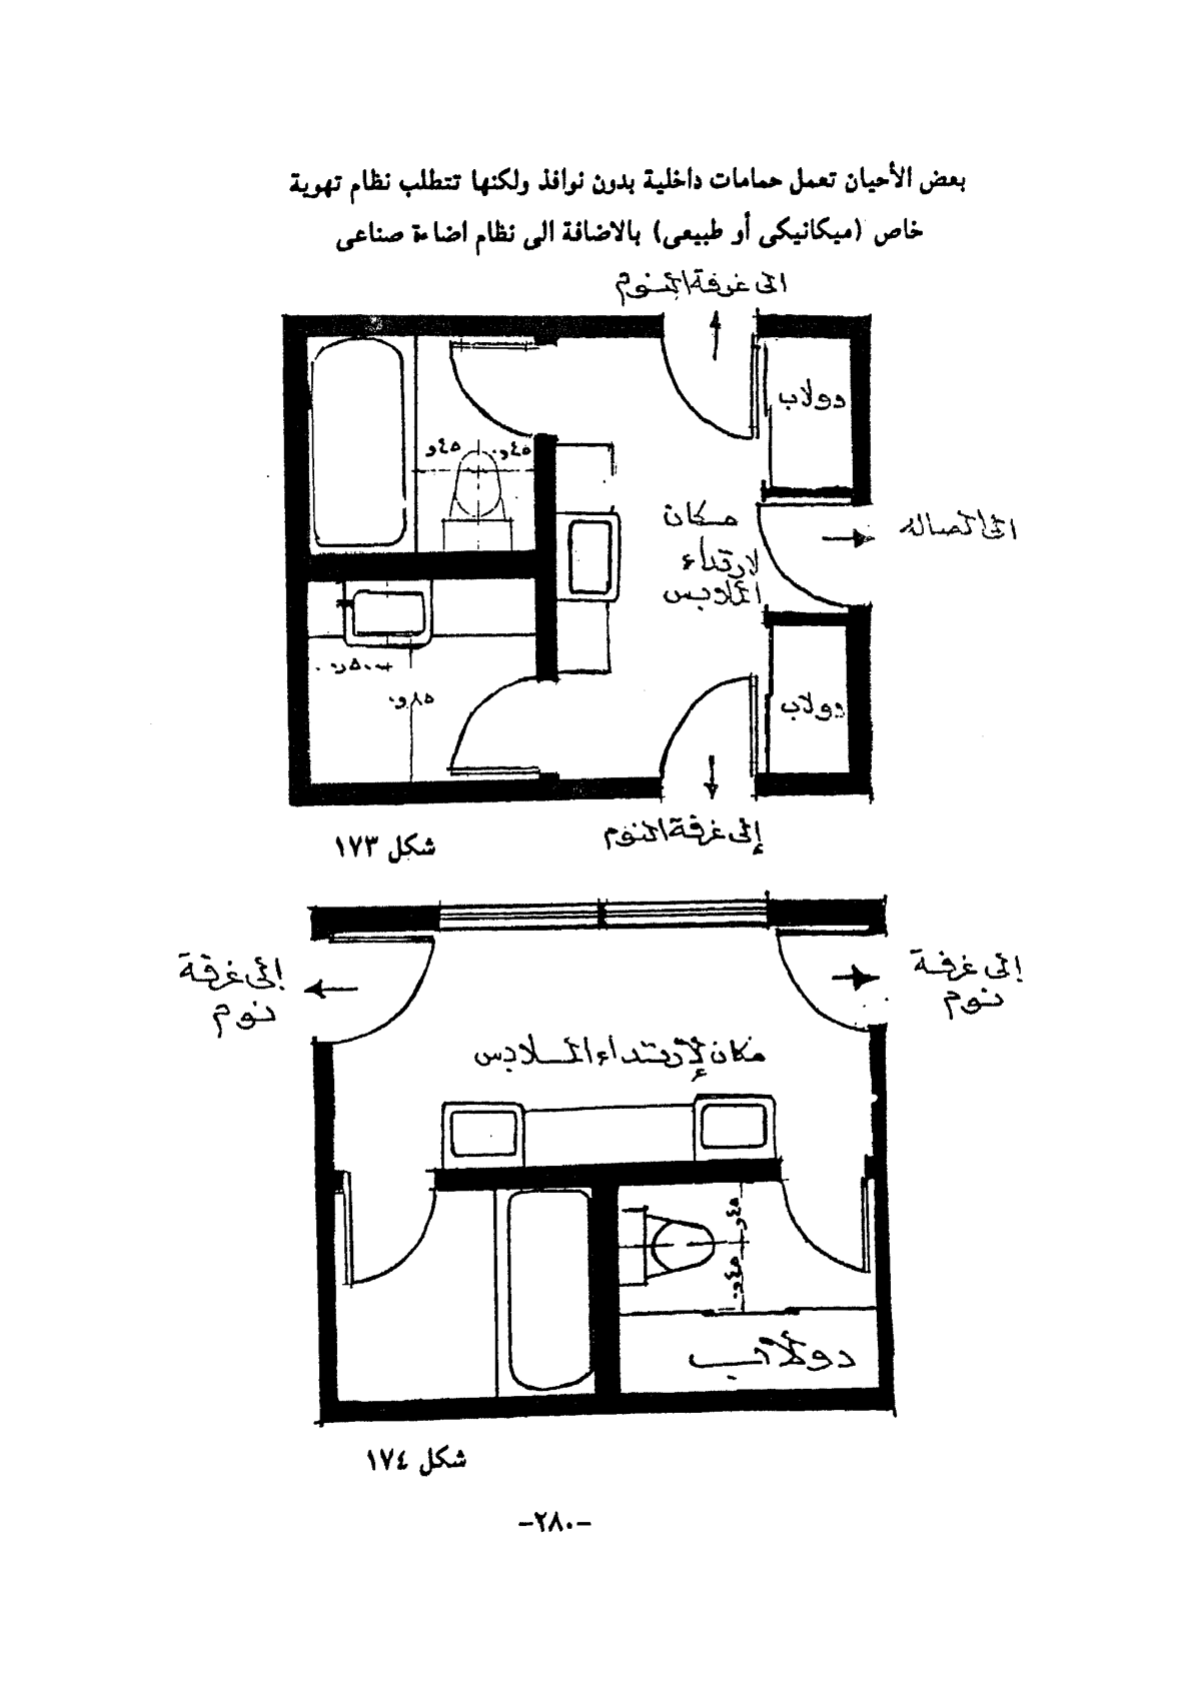 بعض الأحيان تعمل حمامات داخلية بدون نوافذ ولكنها تتطلب نظام تهوية
خاص (ميكانيكى أو طبيعى) بالاضافة الى نظام اضاءة صناعى
الى غرفة النوم
دولاب
٤٥و
٤٥و٠
مكان
لارتداء
الملابس
الى الصاله
٥٠و٠
٨٥و٠
دولاب
إلى غرفة النوم
شكل ١٧٣
إلى غرفة
نوم
إلى غرفة
نوم
مكان لإرتداء الملابس
٤٥و
٤٥و٠
دولاب
شكل ١٧٤
-٢٨٠-